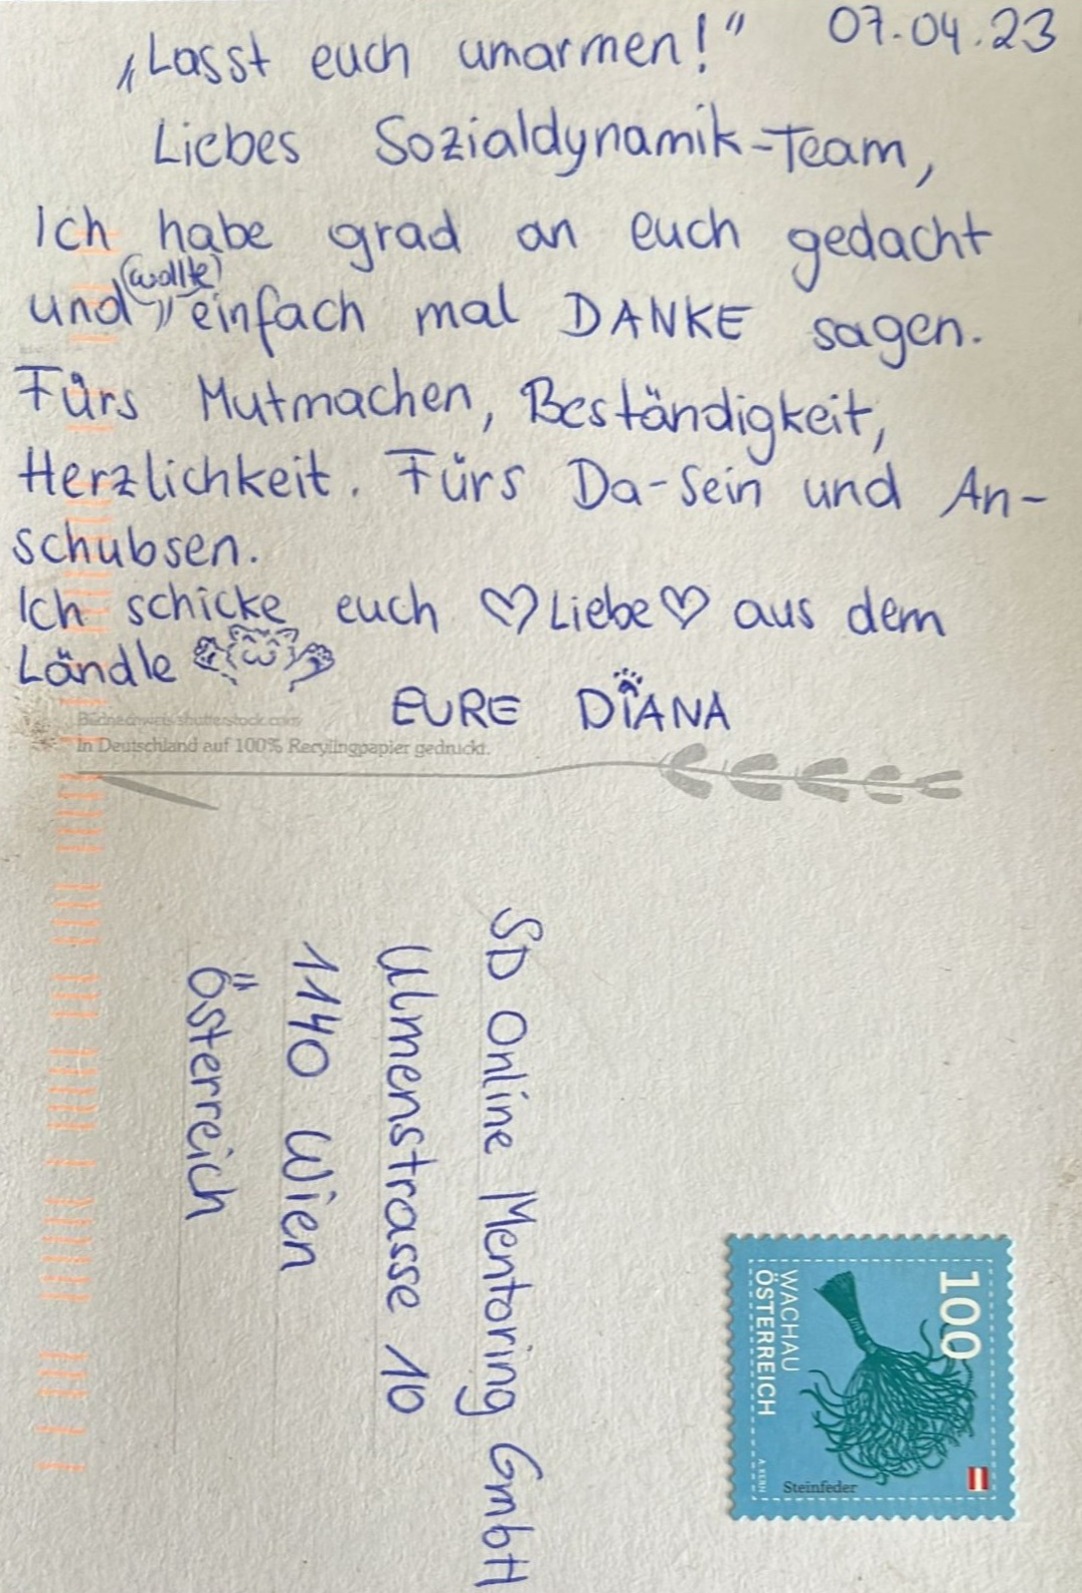 „Lasst euch umarmen!" 07.04.23
Liebes Sozialdynamik-Team,
Ich habe grad an euch gedacht
und (wollte) einfach mal DANKE sagen.
Fürs Mutmachen, Beständigkeit,
Herzlichkeit. Fürs Da-Sein und An-
schubsen.
Ich schicke euch ♡Liebe♡ aus dem
Ländle
EURE DIANA
Bildnachweis: shutterstock.com
In Deutschland auf 100% Recylingpapier gedruckt.
SD Online Mentoring GmbH
Ulmenstrasse 10
1140 Wien
Österreich
100
WACHAU
ÖSTERREICH
Steinfeder
A. KERN